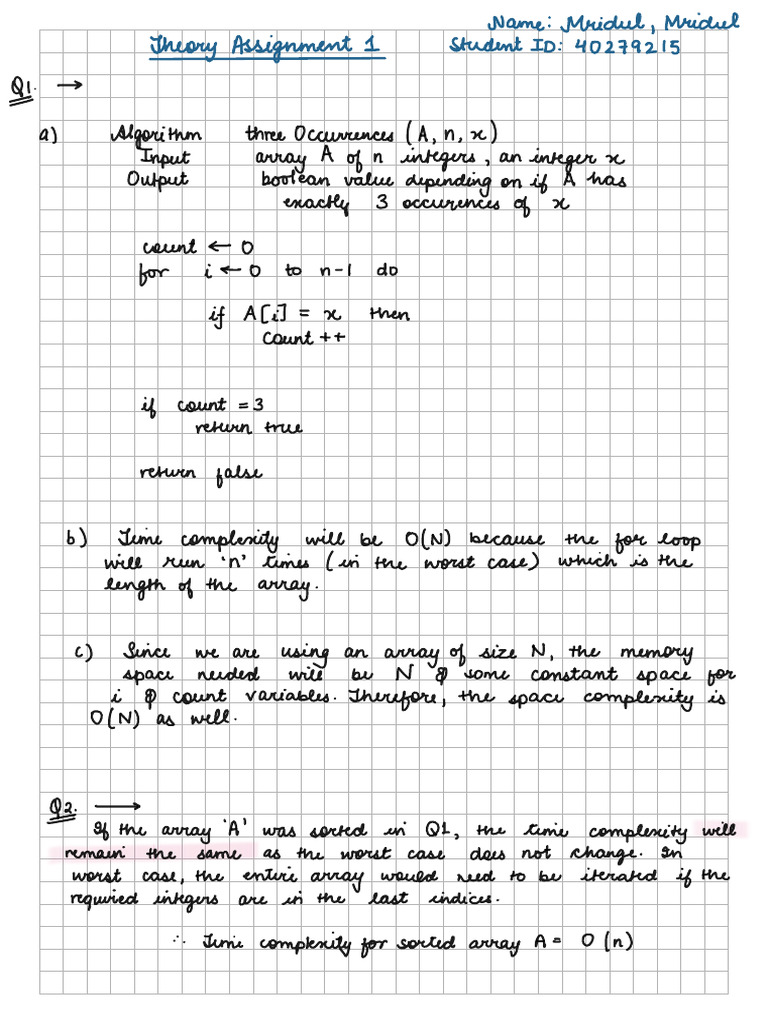 Name: Mridul, Mridul
Theory Assignment 1
Student ID: 40279215
Q1. →
a) Algorithm three Occurrences (A, n, x)
Input array A of n integers, an integer x
Output boolean value depending on if A has
exactly 3 occurences of x
count ← 0
for i ← 0 to n-1 do
if A[i] = x then
count ++
if count = 3
return true
return false
b) Time complexity will be O(N) because the for loop
will run 'n' times (in the worst case) which is the
length of the array.
c) Since we are using an array of size N, the memory
space needed will be N & some constant space for
i & count variables. Therefore, the space complexity is
O(N) as well.
Q2. →
If the array 'A' was sorted in Q1, the time complexity will
remain the same as the worst case does not change. In
worst case, the entire array would need to be iterated if the
required integers are in the last indices.
∴ Time complexity for sorted array A = O(n)